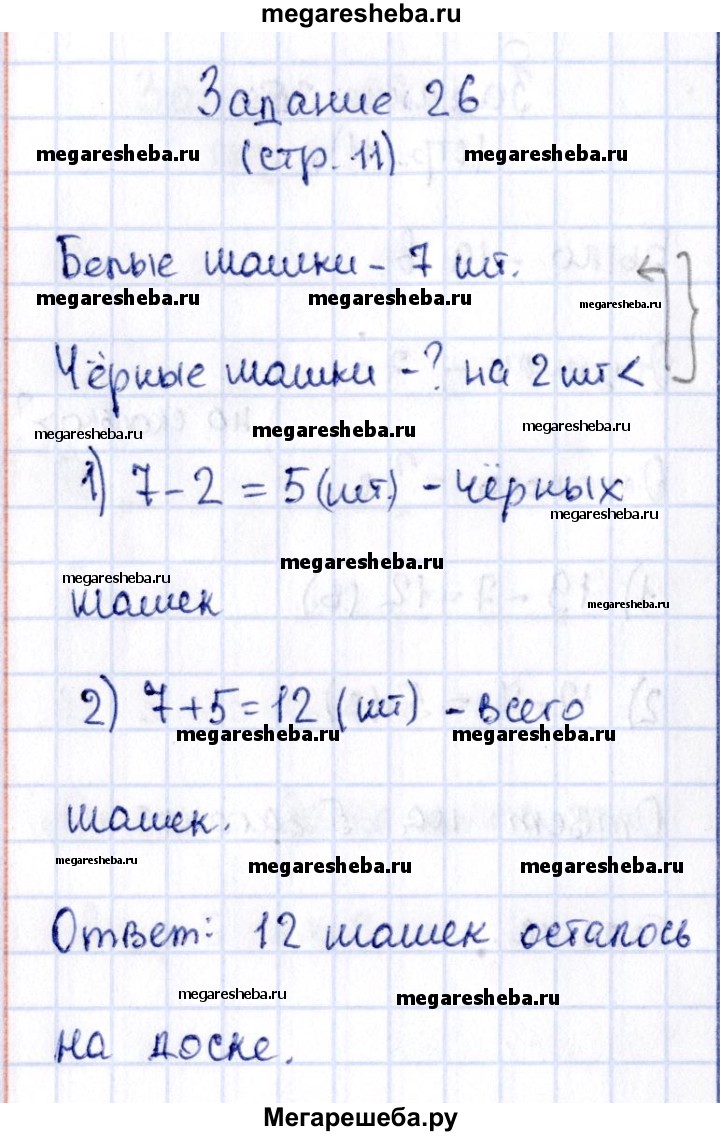 megaresheba.ru
Задание 26
megaresheba.ru (стр. 11) megaresheba.ru
Белые шашки - 7 шт.
megaresheba.ru megaresheba.ru megaresheba.ru
Чёрные шашки - ? на 2 шт <
megaresheba.ru megaresheba.ru megaresheba.ru
1) 7 - 2 = 5 (шт.) - чёрных
megaresheba.ru
megaresheba.ru
megaresheba.ru шашек megaresheba.ru
2) 7 + 5 = 12 (шт) - всего
megaresheba.ru megaresheba.ru
шашек.
megaresheba.ru megaresheba.ru megaresheba.ru
Ответ: 12 шашек осталось
megaresheba.ru megaresheba.ru
на доске.
Мегарешеба.ру